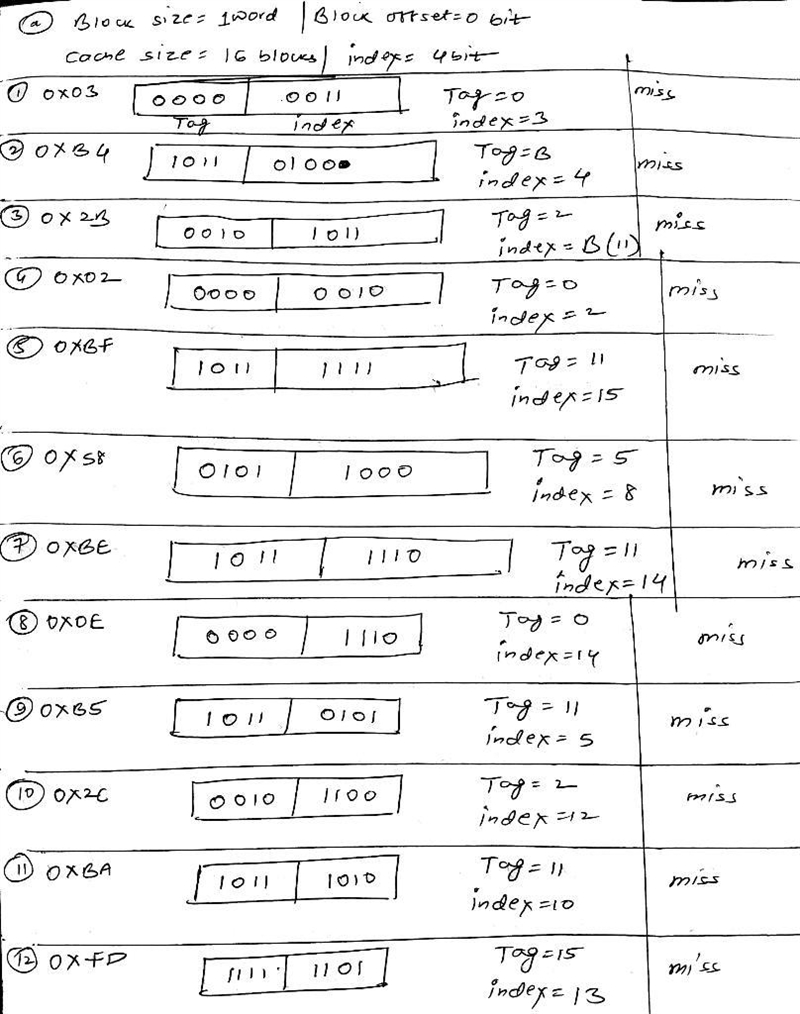 (a) Block size= 1word | Block offset=0 bit
Cache size= 16 blocks| index= 4bit
① 0x03 0000 0011 Tag=0 miss
Tag index index=3
② 0xB4 1011 0100 Tag=B miss
index=4
③ 0x2B 0010 1011 Tag=2 miss
index=B(11)
④ 0x02 0000 0010 Tag=0 miss
index=2
⑤ 0xBF 1011 1111 Tag=11 miss
index=15
⑥ 0x58 0101 1000 Tag=5
index=8 miss
⑦ 0xBE 1011 1110 Tag=11 miss
index=14
⑧ 0x0E 0000 1110 Tag=0 miss
index=14
⑨ 0xB5 1011 0101 Tag=11 miss
index=5
⑩ 0x2C 0010 1100 Tag=2 miss
index=12
⑪ 0xBA 1011 1010 Tag=11 miss
index=10
⑫ 0xFD 1111 1101 Tag=15 miss
index=13